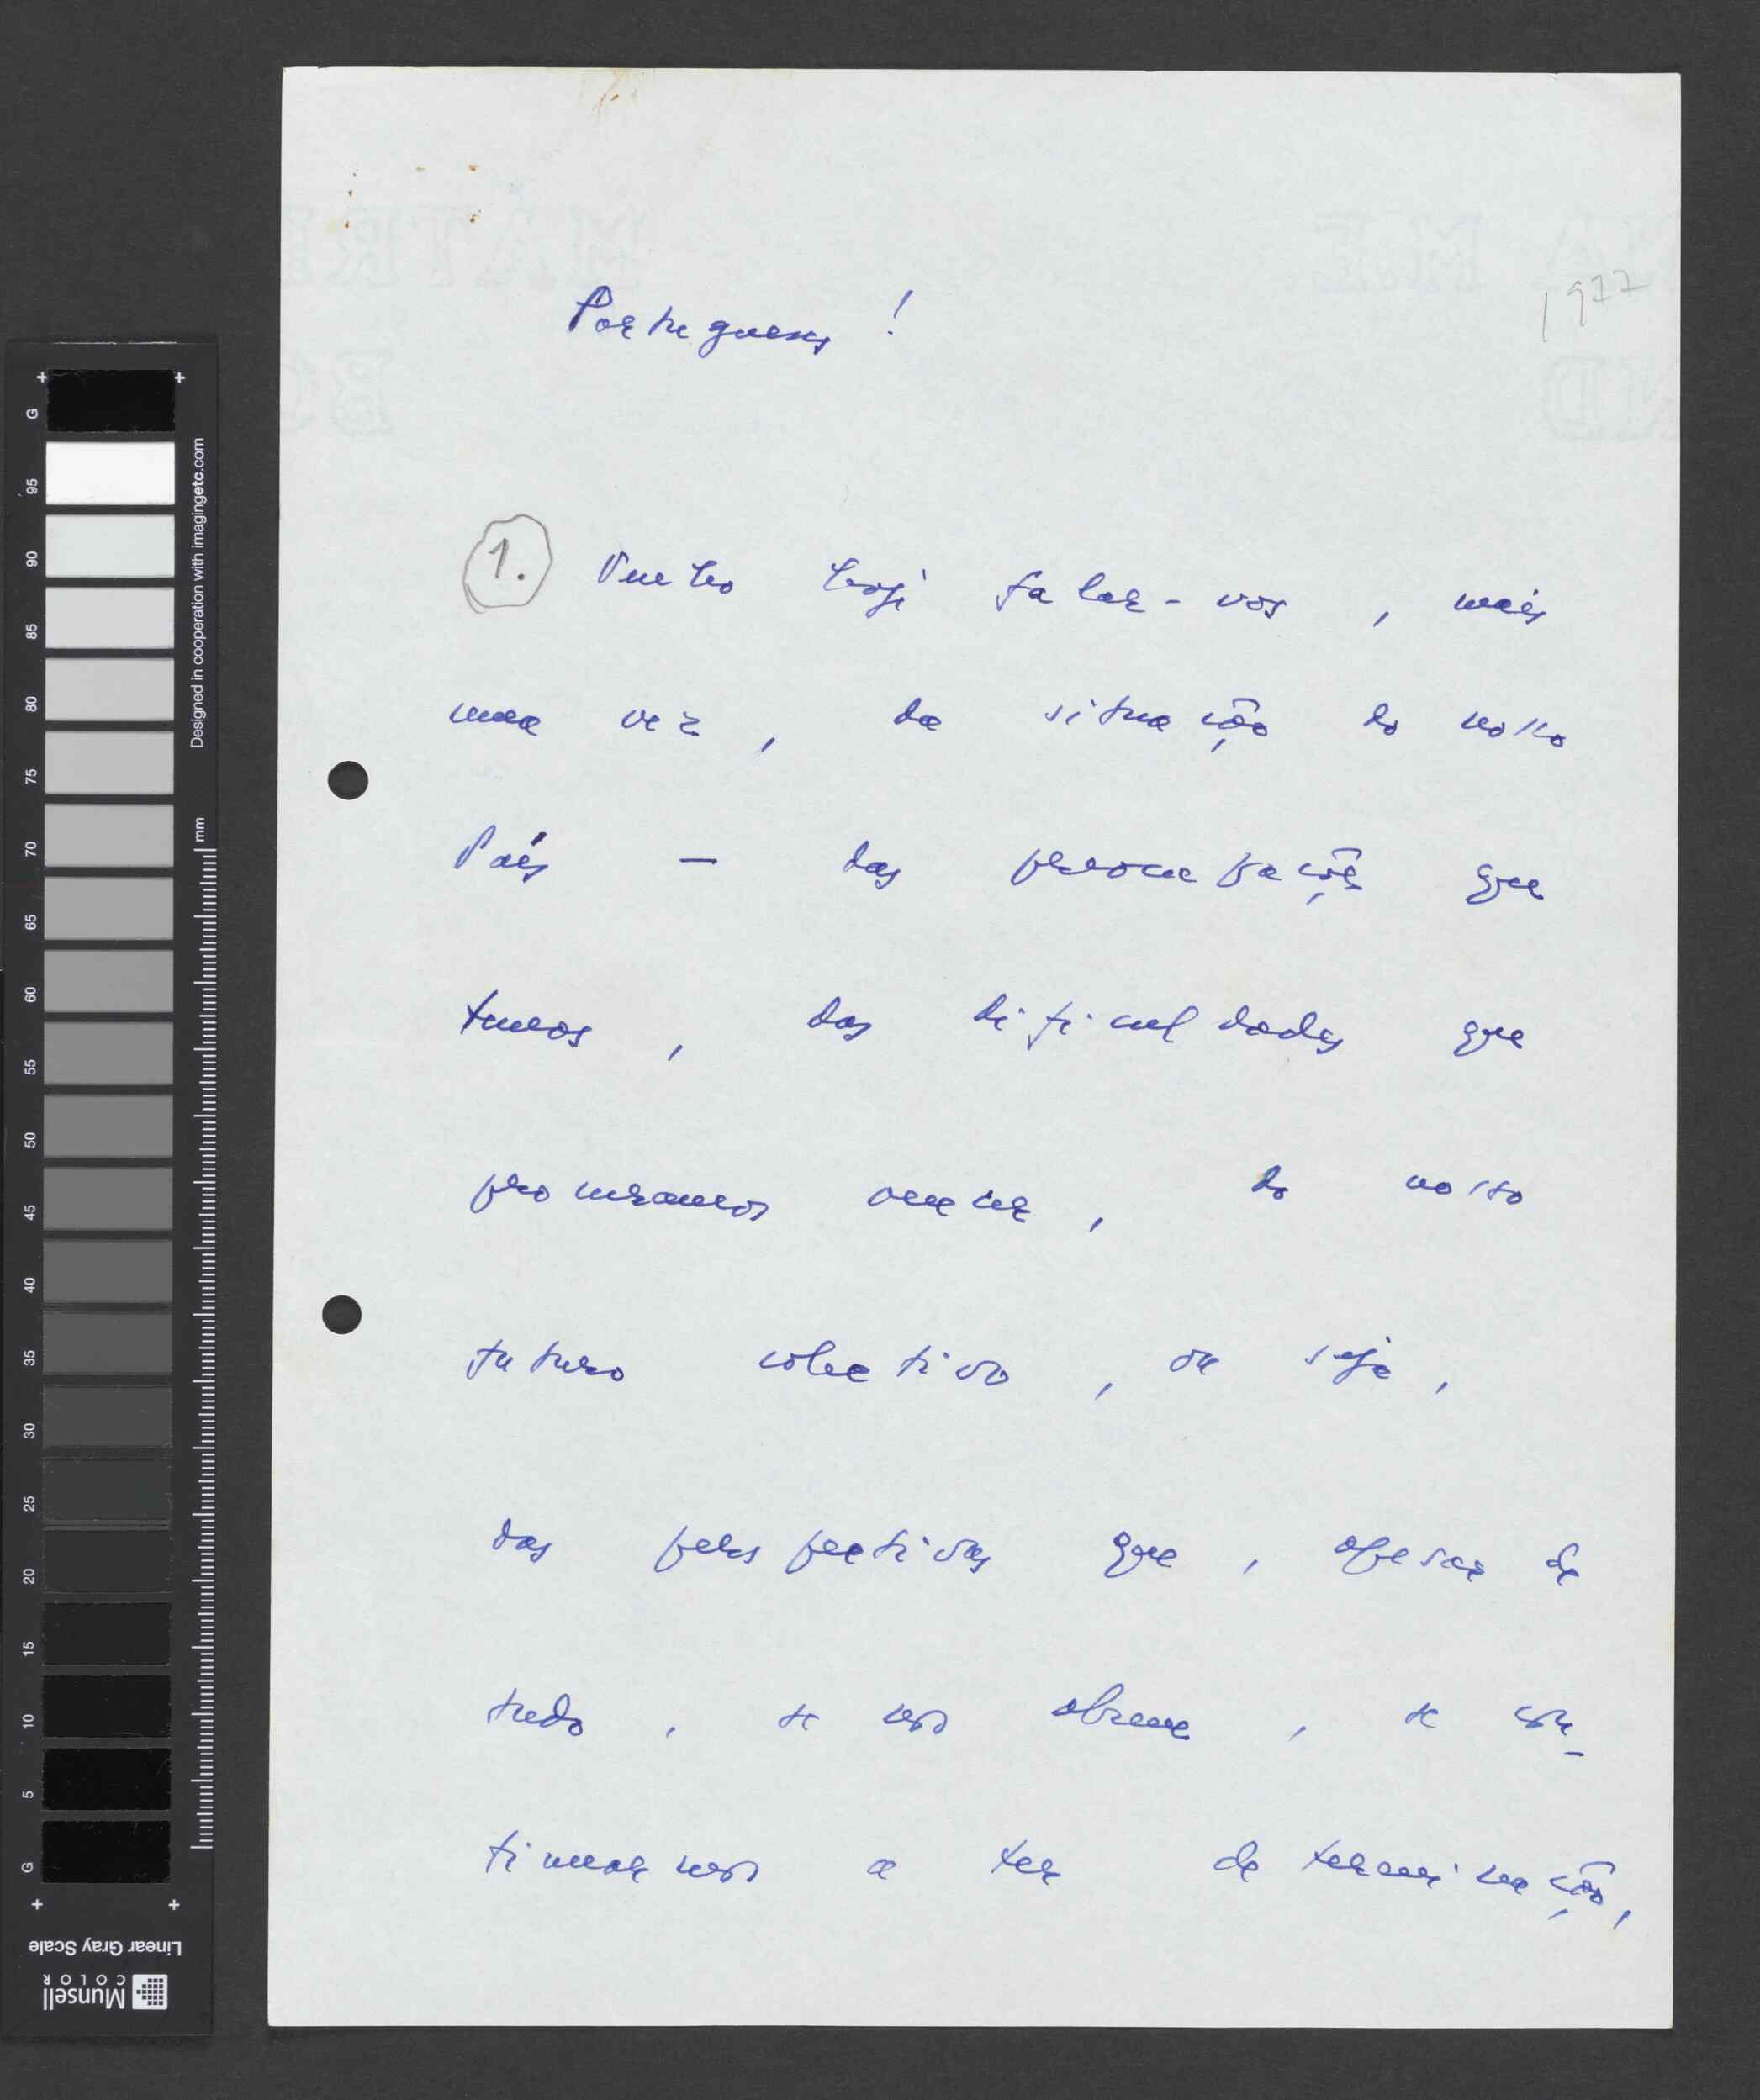 1977
Portugueses!
1. Venho hoje falar-vos, mais
uma vez, da situação do nosso
País — das preocupações que
temos, das dificuldades que
procuramos vencer, do nosso
futuro colectivo, ou seja,
das perspectivas que, apesar de
tudo, se nos abrem, se con-
tinuarmos a ter determinação,
G
95
90
85
80
75
70
65
60
55
50
45
40
35
30
25
20
15
10
5
G
mm
Designed in cooperation with imagingetc.com
Linear Gray Scale
Munsell
COLOR